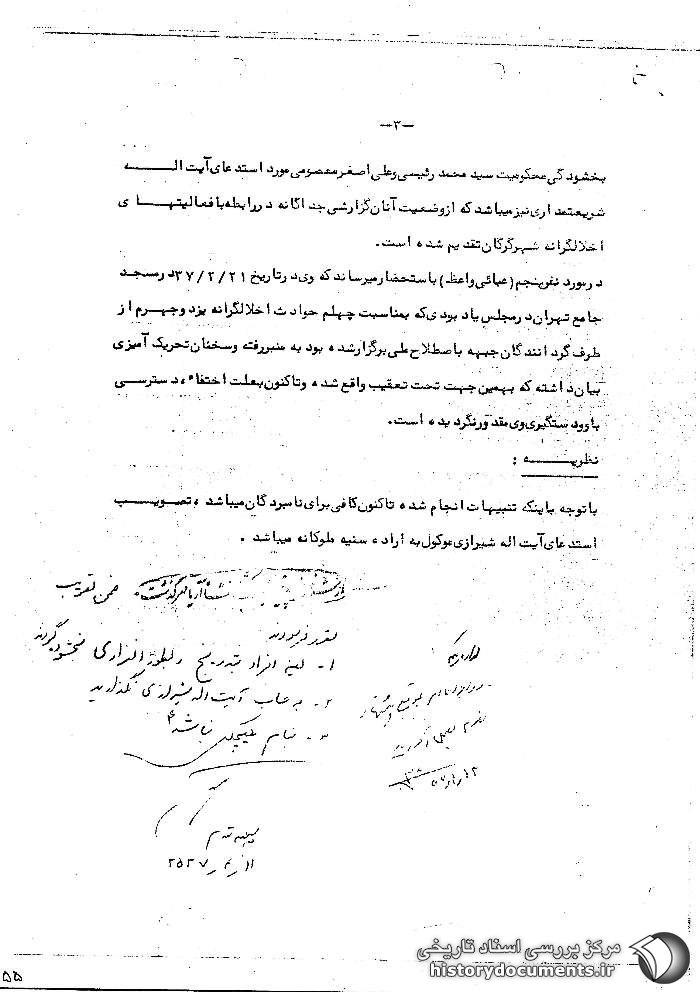 -۳-
بخشودگی محکومیت سید محمد رئیسی وعلی اصغر معصومی مورد استدعای آیت الـــه
شریعتمداری نیز میباشد که از وضعیت آنان گزارشی جداگانه در رابطه با فعالیتهــای
اخلالگرانه شهر گرگان تقدیم شده است.
در مورد نفر پنجم (عبائی واعظ) باستحضار میرساند که وی در تاریخ ۳۷/۲/۲۱ در مسجد
جامع تهران در مجلس یادبودی که بمناسبت چهلم حوادث اخلالگرانه یزد وجهرم از
طرف گردانندگان جبهه باصطلاح ملی برگزار شده بود به منبر رفته وسخنان تحریک آمیزی
بیان داشته که بهمین جهت تحت تعقیب واقع شده وتاکنون بعلت اختفاء، دسترسی
باو ودستگیری وی مقدور نگردیده است.
نظریــــه :
با توجه باینکه تنبیهات انجام شده تاکنون کافی برای نامبردگان میباشد، تصویــب
استدعای آیت اله شیرازی موکول به اراده سنیه ملوکانه میباشد.
گذشت. ضمن تصویب
مقرر فرمودند
۱- افراد بتدریج و بطور انفرادی بخشوده گردند
۲- به حساب آیت اله شیرازی بگذارید
۳- بنام نباشد
سپهبد مقدم
۲۵۳۷
۵۵
مرکز بررسی اسناد تاریخی
historydocuments.ir